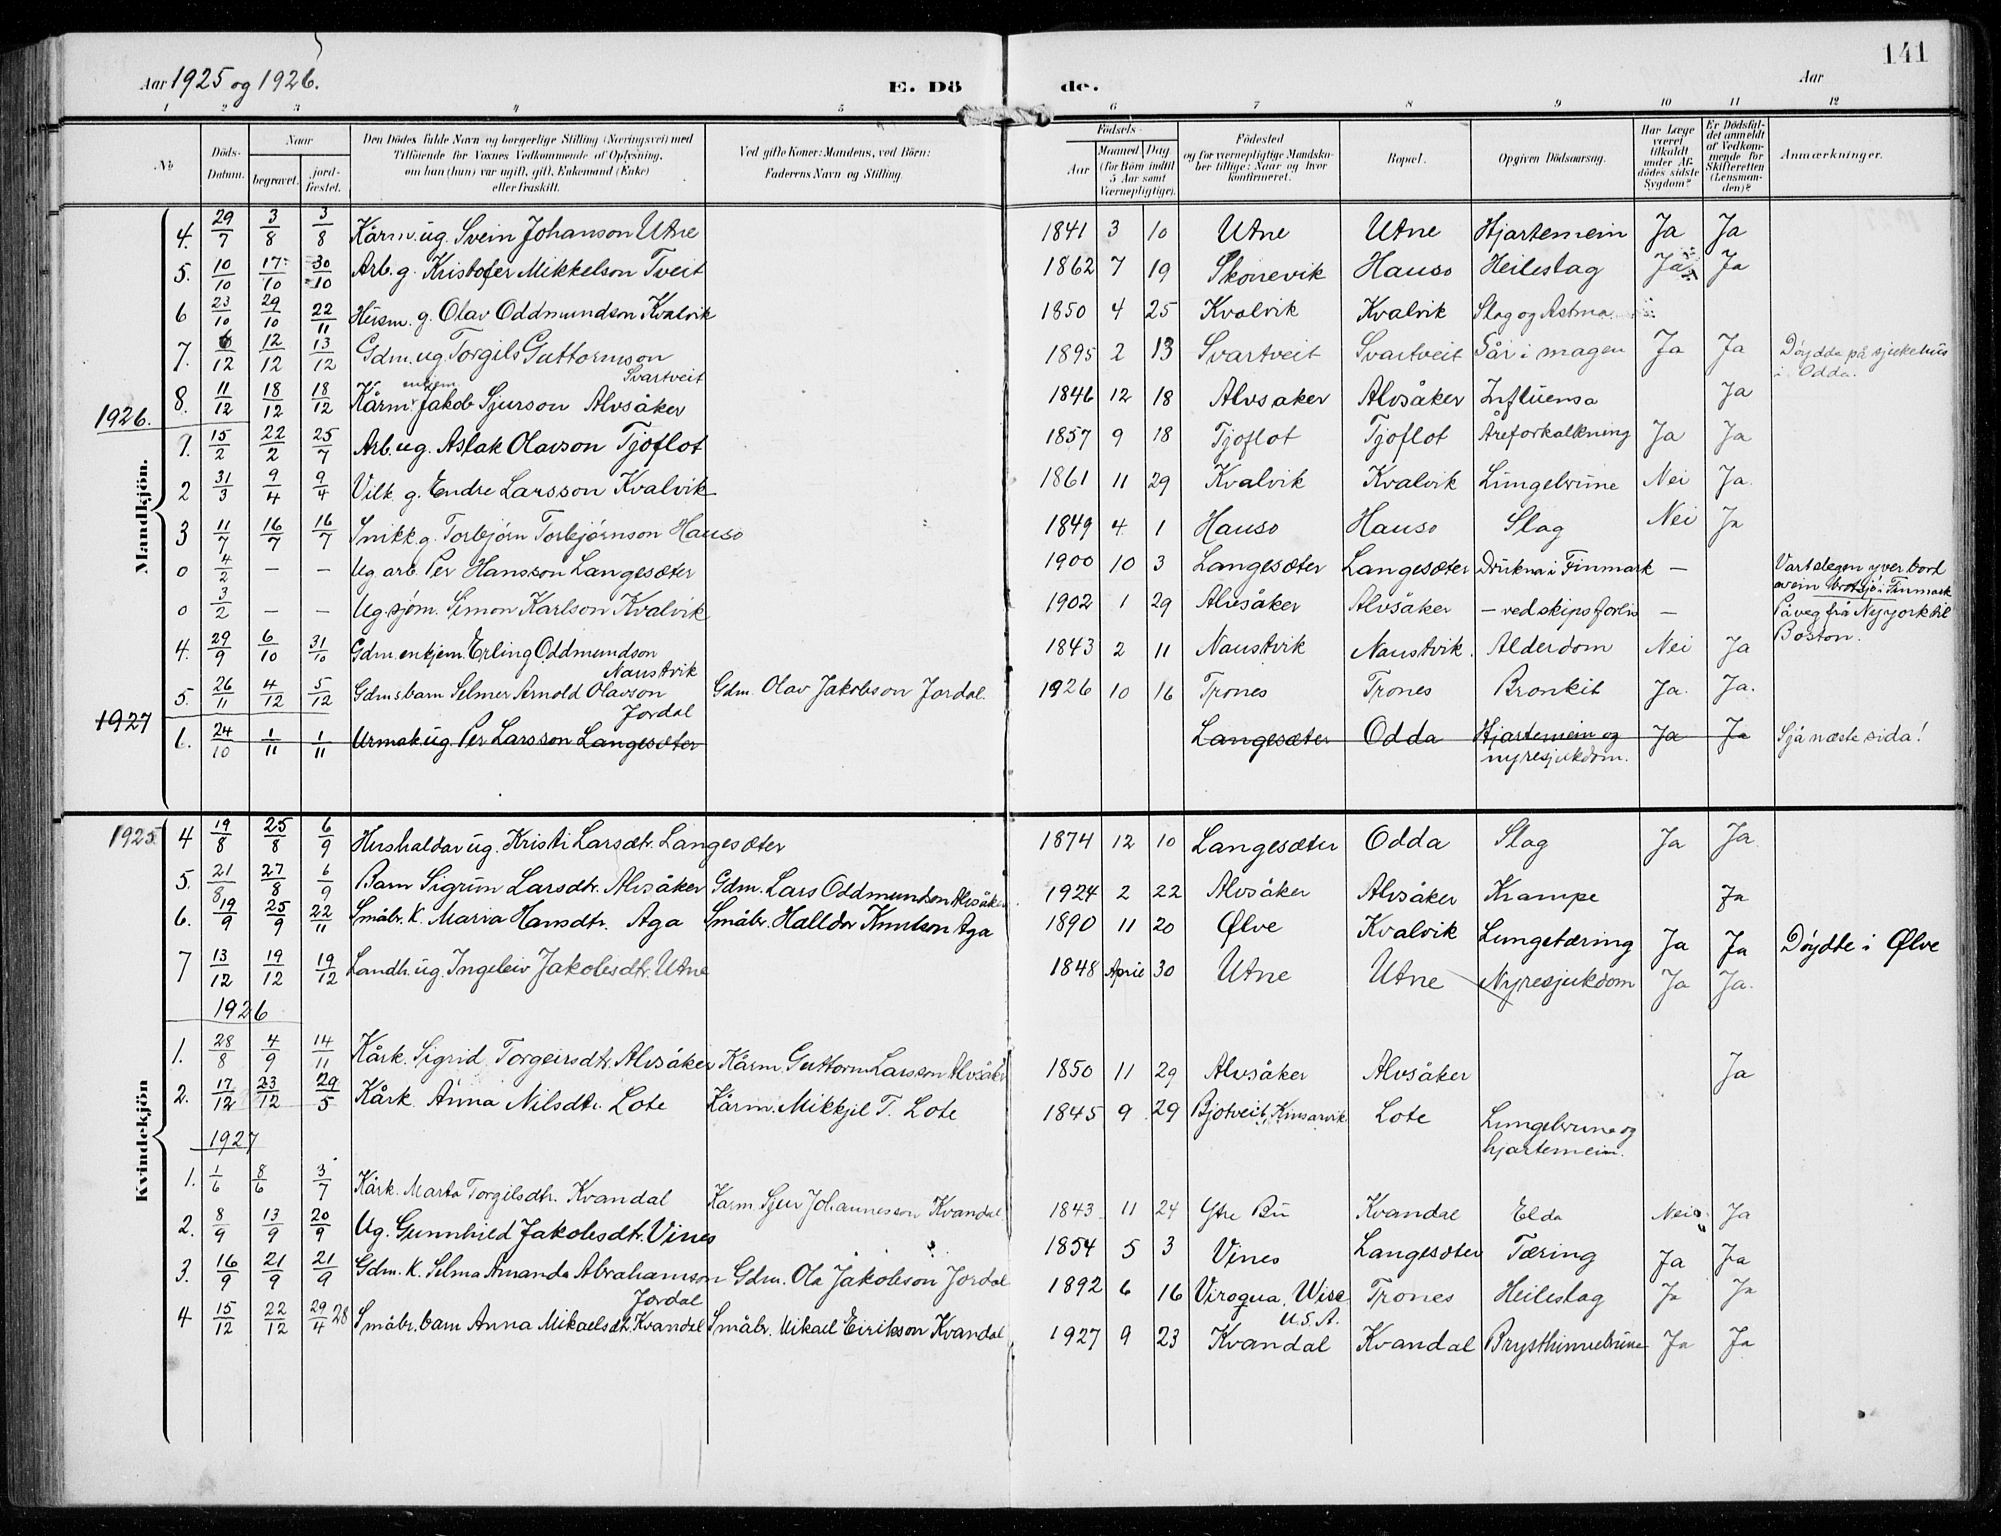 141
Aar 1925 og 1926. E. Dö de. Aar
1 2 3 4 5 6 7 8 9 10 11 12
№ Döds-Datum. Naar begravet. jord-fæstet. Den Dödes fulde Navn og borgerlige Stilling (Næringsvei) med Tilföiende for Voxnes Vedkommende af Oplysning, om han (hun) var ugift, gift, Enkemand (Enke) eller fraskilt. Ved gifte Koner: Mandens, ved Börn: Faderens Navn og Stilling. Födsels- Aar Maaned Dag (for Börn indtil 5 Aar samt Værnepligtige). Födested og for værnepligtige Mandskaber tillige: Naar og hvor konfirmeret. Bopæl. Opgiven Dödsaarsag. Har Læge været tilkaldt under Afdödes sidste Sygdom? Er Dödsfaldet anmeldt af Vedkommende for Skifteretten (Lensmanden)? Anmærkninger.
Mandkjön.
4. 29/7 3/8 3/8 Kårm. ug. Svein Johanson Utne 1841 3 10 Utne Utne Hjartemein Ja Ja
5. 10/10 17/10 30/10 Arb. g. Kristofer Mikkelson Tveit 1862 7 19 Skonevik Hauso Heileslag Ja Ja
6 23/10 29/10 22/11 Husm. g. Olav Oddmundson Kvalvik 1850 4 25 Kvalvik Kvalvik Slag og Astma
7. 6/12 12/12 13/12 Gdm. ug. Torgils Guttormson Svartveit 1895 2 13 Svartveit Svartveit Sår i magen Ja Ja Döydde på sjukehus i Odda.
8. 11/12 18/12 18/12 Kårm. enkjem. Jakob Sjurson Alvsåker 1846 12 18 Alvsaker Alvsåker Influensa Ja
1926.
1. 15/2 22/2 25/7 Arb. ug. Aslak Olavson Tjoflot 1857 9 18 Tjoflot Tjoflot Åreforkalkning Ja Ja
2 31/3 9/4 9/4 Vilk. g. Endre Larsson Kvalvik 1861 11 29 Kvalvik Kvalvik Lungebrune Nei Ja.
3 11/7 16/7 16/7 Snikk. g. Torbjörn Torbjörnson Hauso 1849 4. 1 Hauso Hauso Slag Nei Ja
0 4/2 — — Ug. arb. Per Hansson Langesæter 1900 10 3 Langesæter Langesæter Drukna i Finmark — Vart slegen yver bord av ein brotsjö i Finmark
0 3/2 — — Ug. sjöm. Simon Karlson Kvalvik 1902 1 29 Alvsåker Alvsåker — ved skipsforlis — På veg frå Nyyork til Boston.
4. 29/9 6/10 31/10 Gdm. enkjem. Erling Oddmundson Naustvik 1843 2 11 Naustvik Naustvik. Alderdom Nei Ja
5. 26/11 4/12 5/12 Gdmsbarn Selmer Arnold Olavson Jordal Gdm. Olav Jakobson Jordal. 1926 10 16 Trones Trones Bronkit Ja. Ja.
1927
6. 24/10 1/11 1/11 Urmak. ug. Per Larsson Langesæter Langesæter Odda Hjartemein og nyresjukdom. Ja Ja Sjå næste sida!
Kvindekjön
1925
4 19/8 25/8 6/9 Hushaldar ug. Kristi Larsdtr. Langesæter 1874 12 10 Langesæter Odda Slag Ja Ja
5. 21/8 27/8 6/9 Barn Sigrun Larsdtr. Alvsåker Gdm. Lars Oddmundson Alvsåker. 1924 2 22 Alvsåker Alvsåker Krampe Ja
6. 19/9 25/9 22/11 Småbr. k. Maria Hansdtr. Aga Småbr. Halldor Knutson Aga 1890 11 20 Ølve Kvalvik Lungetæring Ja Ja Döydte i Ølve
7 13/12 19/12 19/12 Landh. ug. Ingeleiv Jakobsdtr. Utne 1848 April 30 Utne Utne Nyresjukdom Ja Ja.
1926
1. 28/8 4/9 14/11 Kårk. Sigrid Torgeirsdtr. Alvsåker Kårm. Guttorm Larsson Alvsåker 1850 11 29 Alvsåker Alvsåker Ja
2. 17/12 23/12 29/5 Kårk. Anna Nilsdtr. Lote Kårm. Mikkjil T. Lote 1845 9 29 Bjotveit, Kinsarvik Lote Lungebrune og hjartemein.
1927
1. 1/6 8/6 3/7 Kårk. Marta Torgilsdtr. Kvandal Kårm. Sjur Johannesson Kvandal 1843 11 24 Ytre Bu Kvandal Elda Nei Ja
2. 8/9 13/9 20/9 Ug. Gunnhild Jakobsdtr. Vines 1854 5 3 Vines Langesæter Tæring Ja Ja
3. 16/9 21/9 21/9 Gdm. k. Selma Amanda Abrahamson Jordal Gdm. Ola Jakobson Jordal 1892 6 16 Viroqua, Wisc. U.S.A. Trones Heileslag Ja Ja
4 15/12 22/12 29/4 28 Småbr. barn Anna Mikaelsdtr. Kvandal Småbr. Mikael Eirikson Kvandal 1927 9 23 Kvandal Kvandal Brysthinnebrune Ja Ja